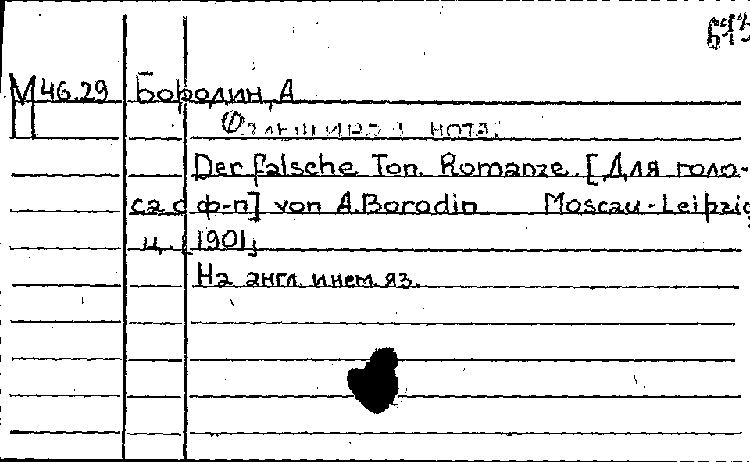 М46.29 Бородин, А
Фальшивая нота.
Der falsche Ton. Romanze. [Для голо-
са с ф-п] von A. Borodin Moscau-Leipzig
ц. [1901]
На англ. и нем. яз.